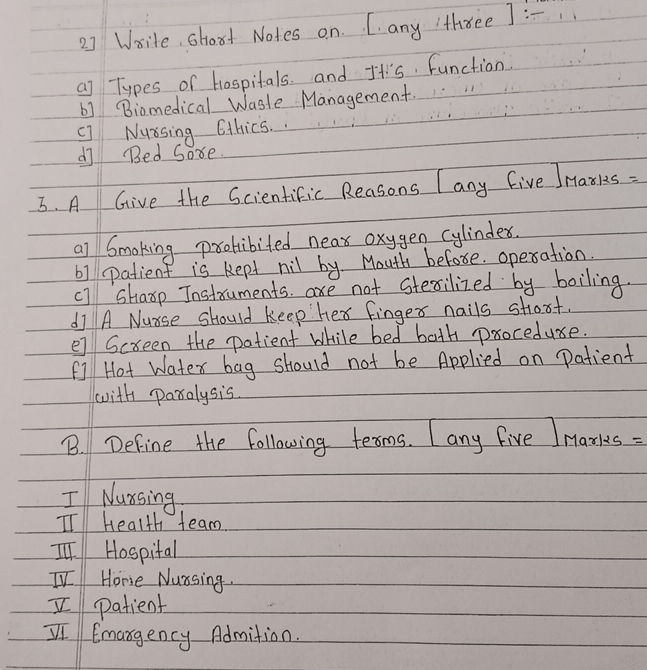 2] Write Short Notes on [any three] :-
a] Types of Hospitals and It's function.
b] Biomedical Waste Management.
c] Nursing Ethics.
d] Bed Sore.
3. A Give the Scientific Reasons [any five] Marks =
a] Smoking prohibited near oxygen cylinder.
b] patient is kept nil by Mouth before operation.
c] Sharp Instruments are not Sterilized by boiling.
d] A Nurse should keep her finger nails short.
e] Screen the patient While bed bath procedure.
f] Hot Water bag should not be Applied on patient
with paralysis.
B. Define the following terms. [any five] Marks =
I Nursing.
II Health team.
III Hospital
IV Home Nursing.
V patient
VI Emargency Admition.